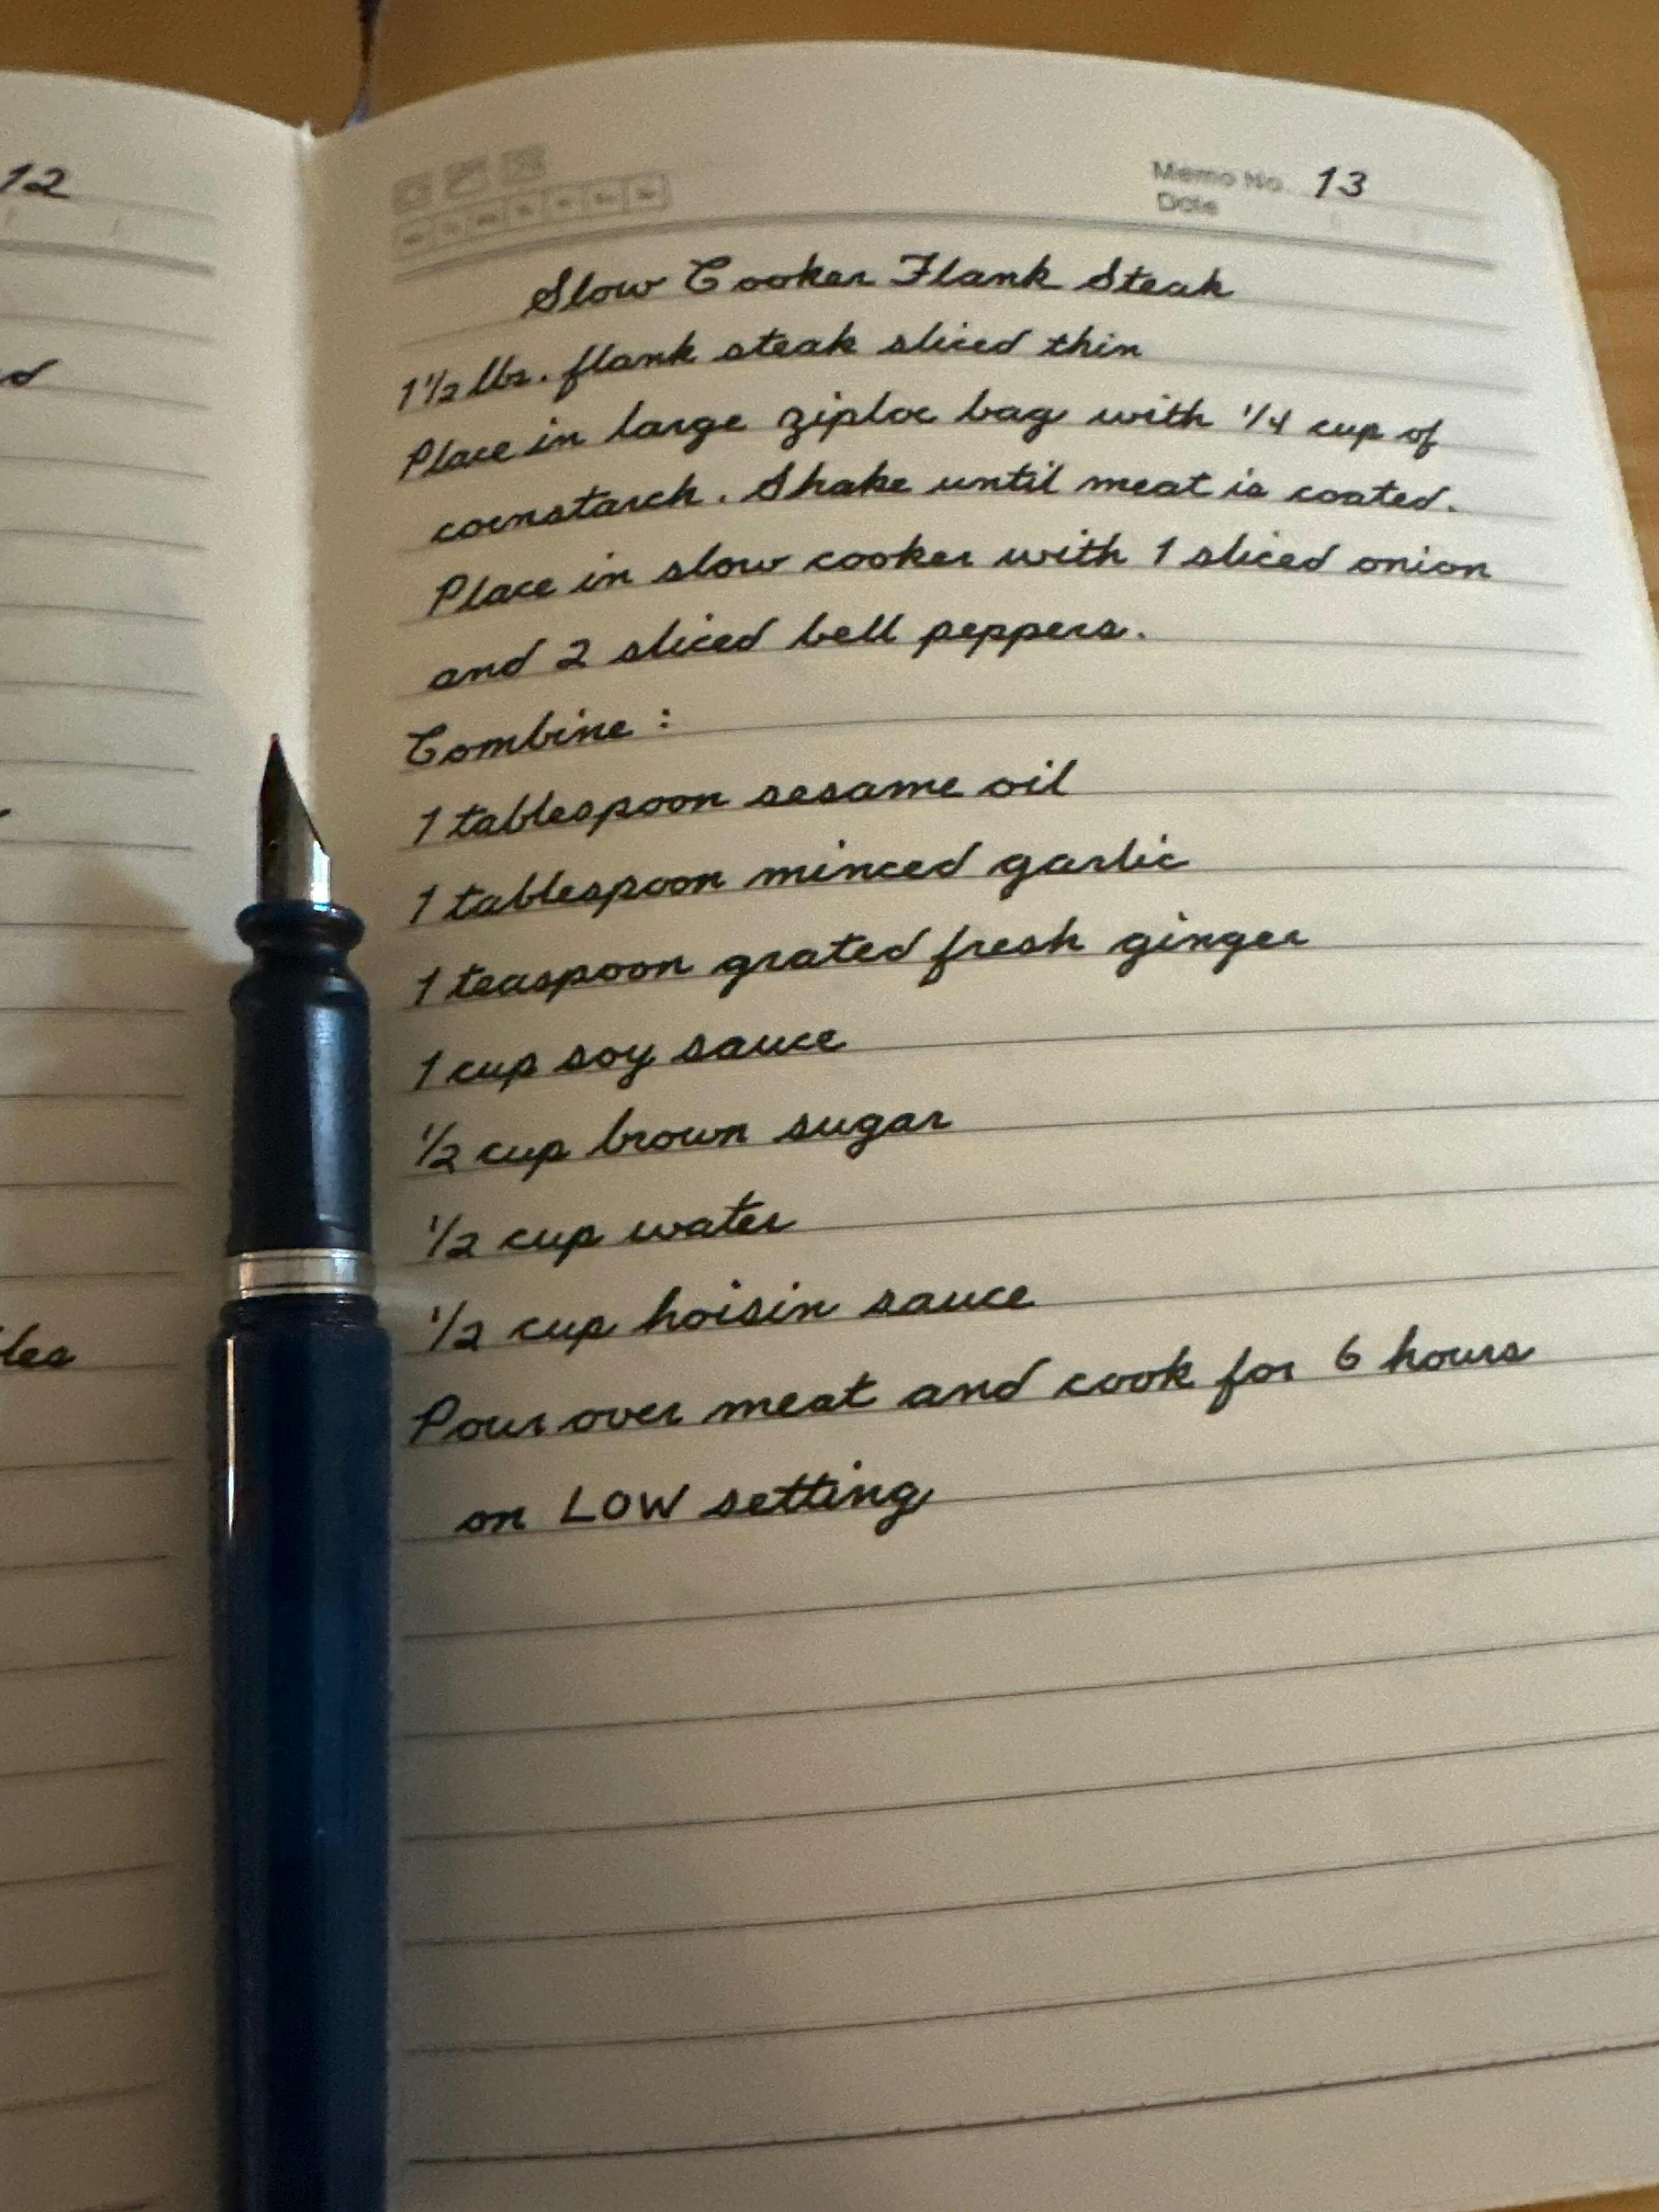 12
Memo No. 13
Date
Slow Cooker Flank Steak
1 1/2 lbs. flank steak sliced thin
Place in large ziploc bag with 1/4 cup of
cornstarch. Shake until meat is coated.
Place in slow cooker with 1 sliced onion
and 2 sliced bell peppers.
Combine :
1 tablespoon sesame oil
1 tablespoon minced garlic
1 teaspoon grated fresh ginger
1 cup soy sauce
1/2 cup brown sugar
1/2 cup water
1/2 cup hoisin sauce
Pour over meat and cook for 6 hours
on LOW setting